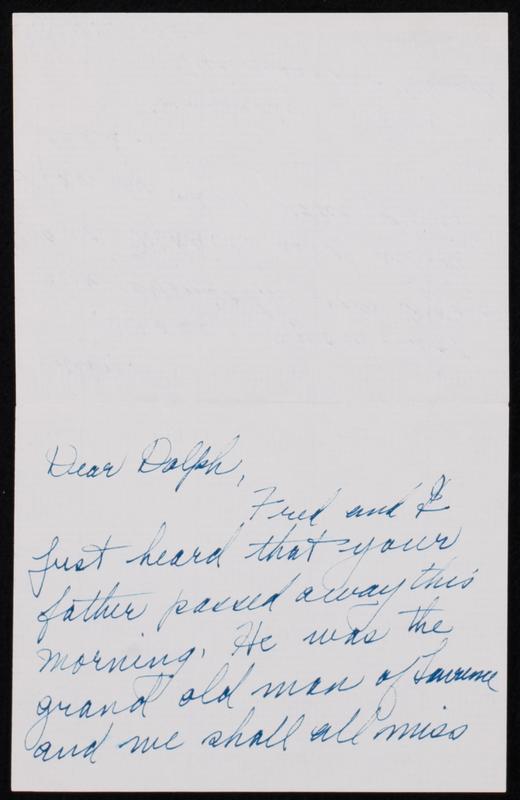 Dear Dolph,
Fred and I
just heard that your
father passed away this
morning. He was the
grand old man of Lawrence
and we shall all miss